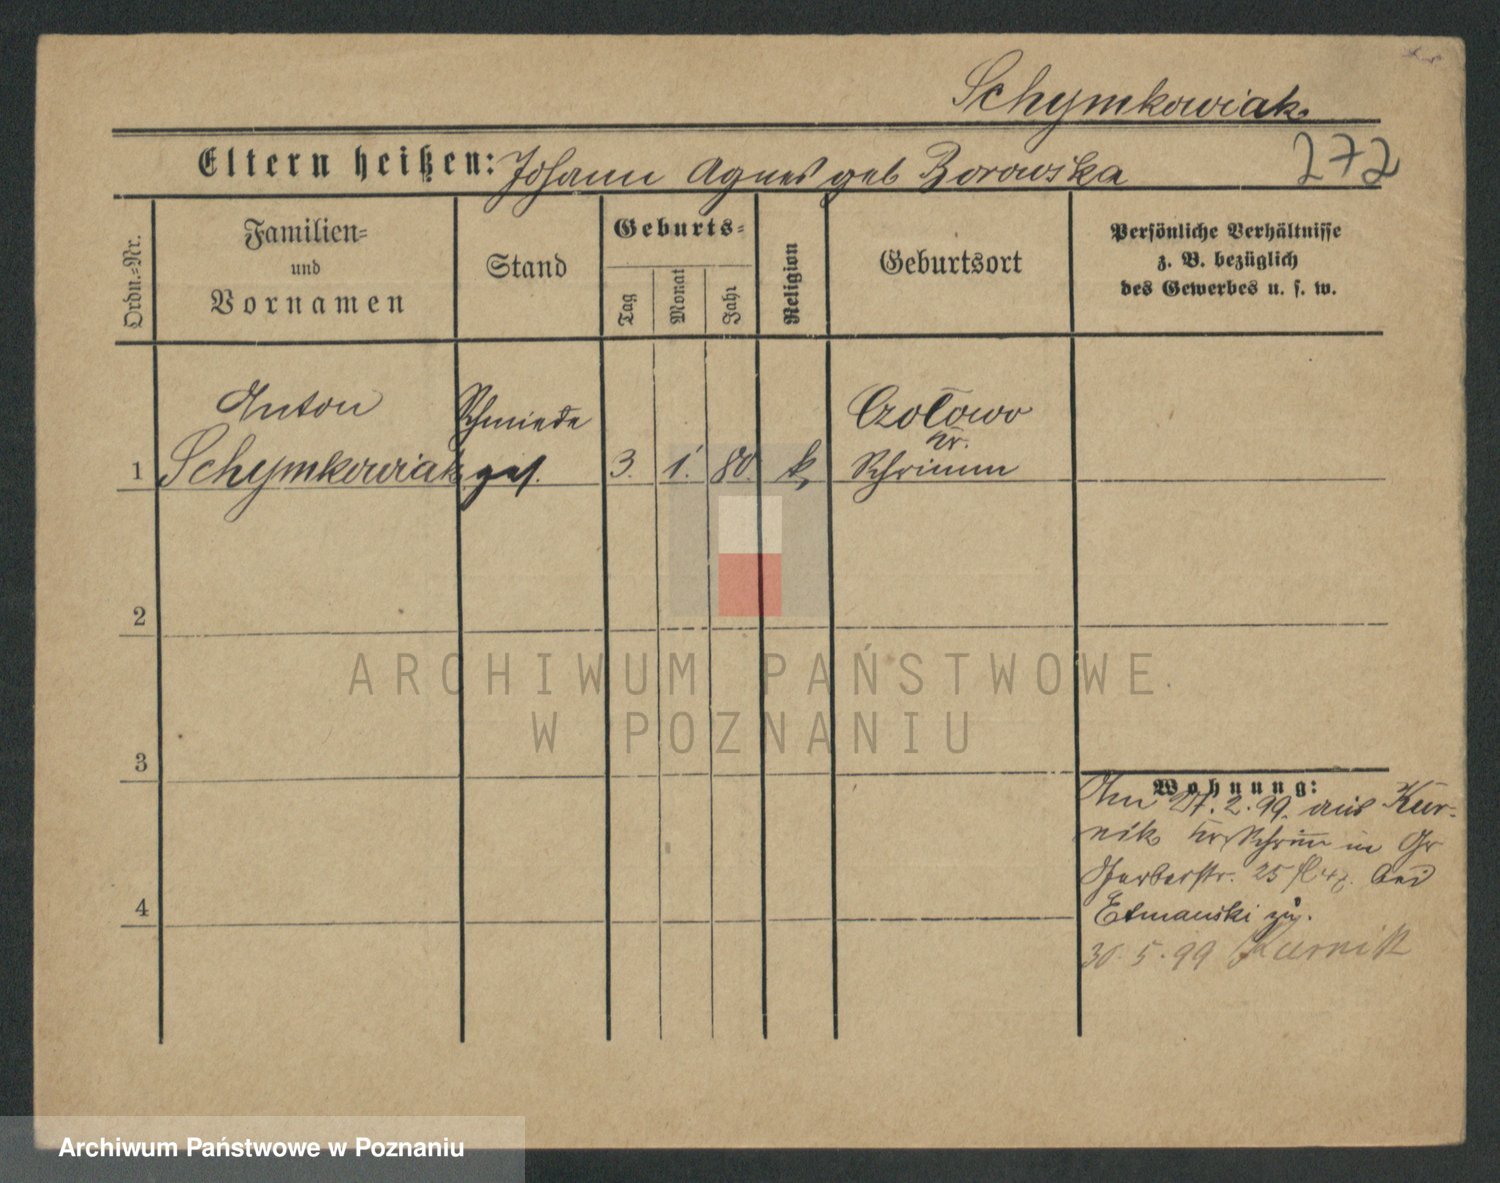 Schymkowiak
Eltern heißen: Johann Agnes geb Borowska
272
Ordn.=Nr.
Familien=
und
Vornamen
Stand
Geburts=
Tag
Monat
Jahr
Religion
Geburtsort
Persönliche Verhältnisse
z. B. bezüglich
des Gewerbes u. s. w.
1
Anton
Schymkowiak
Schmiede
ges.
3. 1. 80. k
Czołowo
Kr.
Schrimm
2
3
4
ARCHIWUM PAŃSTWOWE
W POZNANIU
Wohnung:
Am 27.2.99. aus Kur-
nik Kr Schrim in Gr
Gerberstr. 25 bei
Etmanski zu.
30.5.99 Kurnik
Archiwum Państwowe w Poznaniu